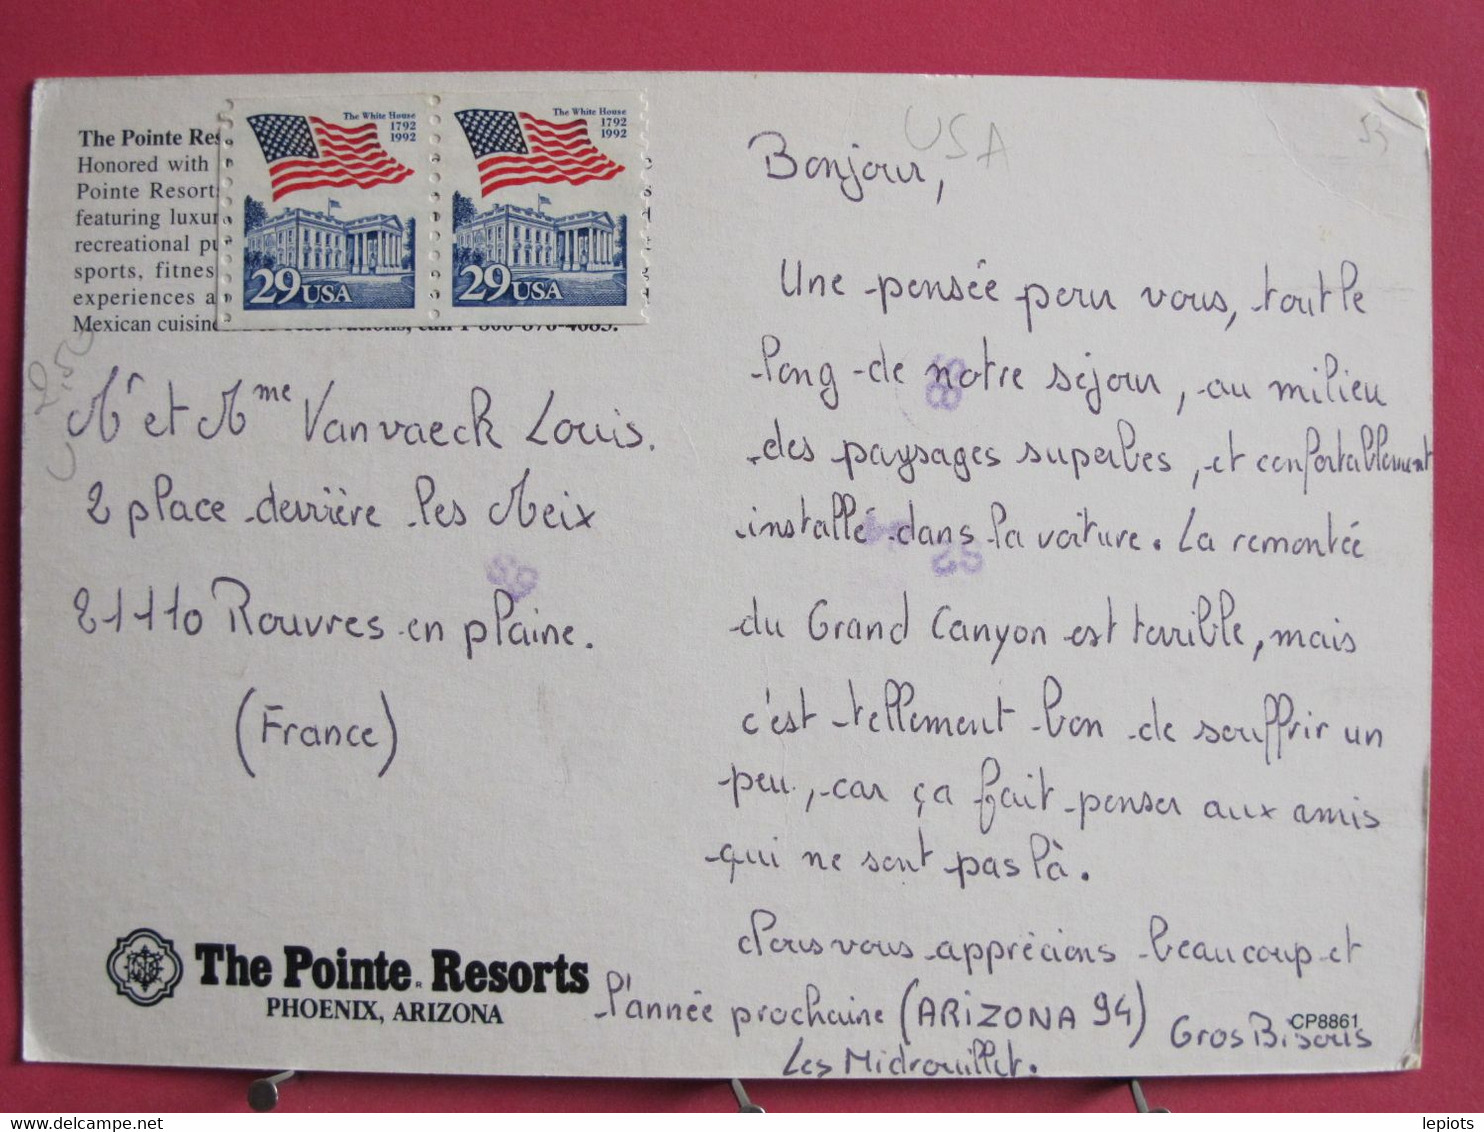 The Pointe Res
Honored with
Pointe Resort
featuring luxur
recreational pu
sports, fitnes
experiences a
Mexican cuisine
call 1-800-876-4683.
The White House
1792
1992
29 USA
The White House
1792
1992
29 USA
USA
Mr et Mme Vanvaeck Louis.
2 place derrière les Meix
21110 Rouvres en plaine.
(France)
The Pointe Resorts
PHOENIX, ARIZONA
Bonjour,
Une pensée pour vous, tout le
long de notre séjour, au milieu
des paysages superbes, et confortablement
installé dans la voiture. La remontée
du Grand Canyon est terrible, mais
c'est tellement bon de souffrir un
peu, car ça fait penser aux amis
qui ne sont pas là.
Nous vous apprécions beaucoup et
l'année prochaine (ARIZONA 94)
Gros Bisous
Les Midrouillet.
CP8861
lepiots
delcampe.net